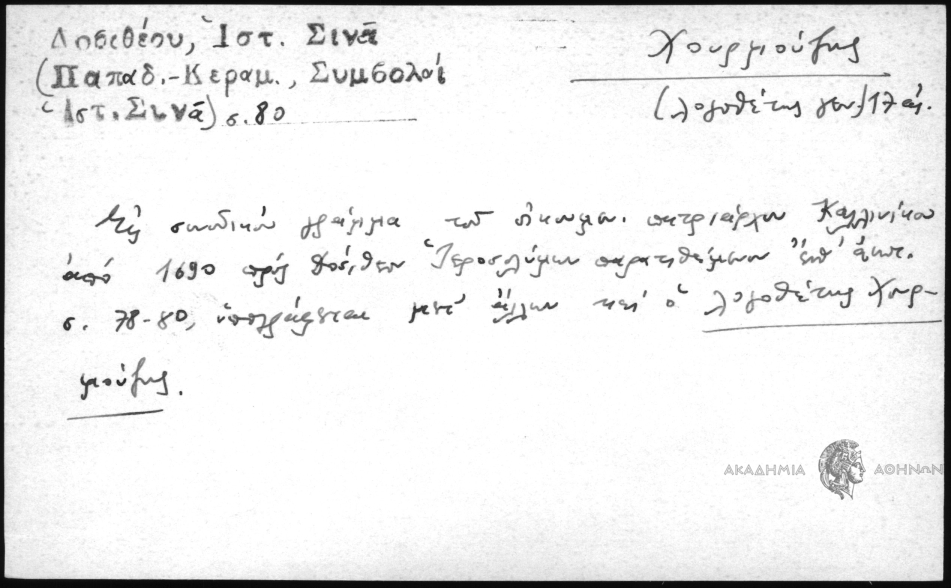 Δοσιθέου, Ἱστ. Σινᾶ
(Παπαδ.-Κεραμ., Συμβολαὶ
Ἱστ. Σινᾶ) σ. 80
Χουρμούζης
(λογοθέτης γεν.) 17 αἰ.
Εἰς συνοδικόν γράμμα τοῦ οἰκουμεν. πατριάρχου Καλλινίκου
ἀπό 1690 πρός Δοσίθεον Ἱεροσολύμων παρατιθέμενον ἔνθ' ἀνωτ.
σ. 78-80, ὑπογράφεται μετ' ἄλλων καί ὁ λογοθέτης Χουρ-
μούζης.
ΑΚΑΔΗΜΙΑ ΑΘΗΝΩΝ